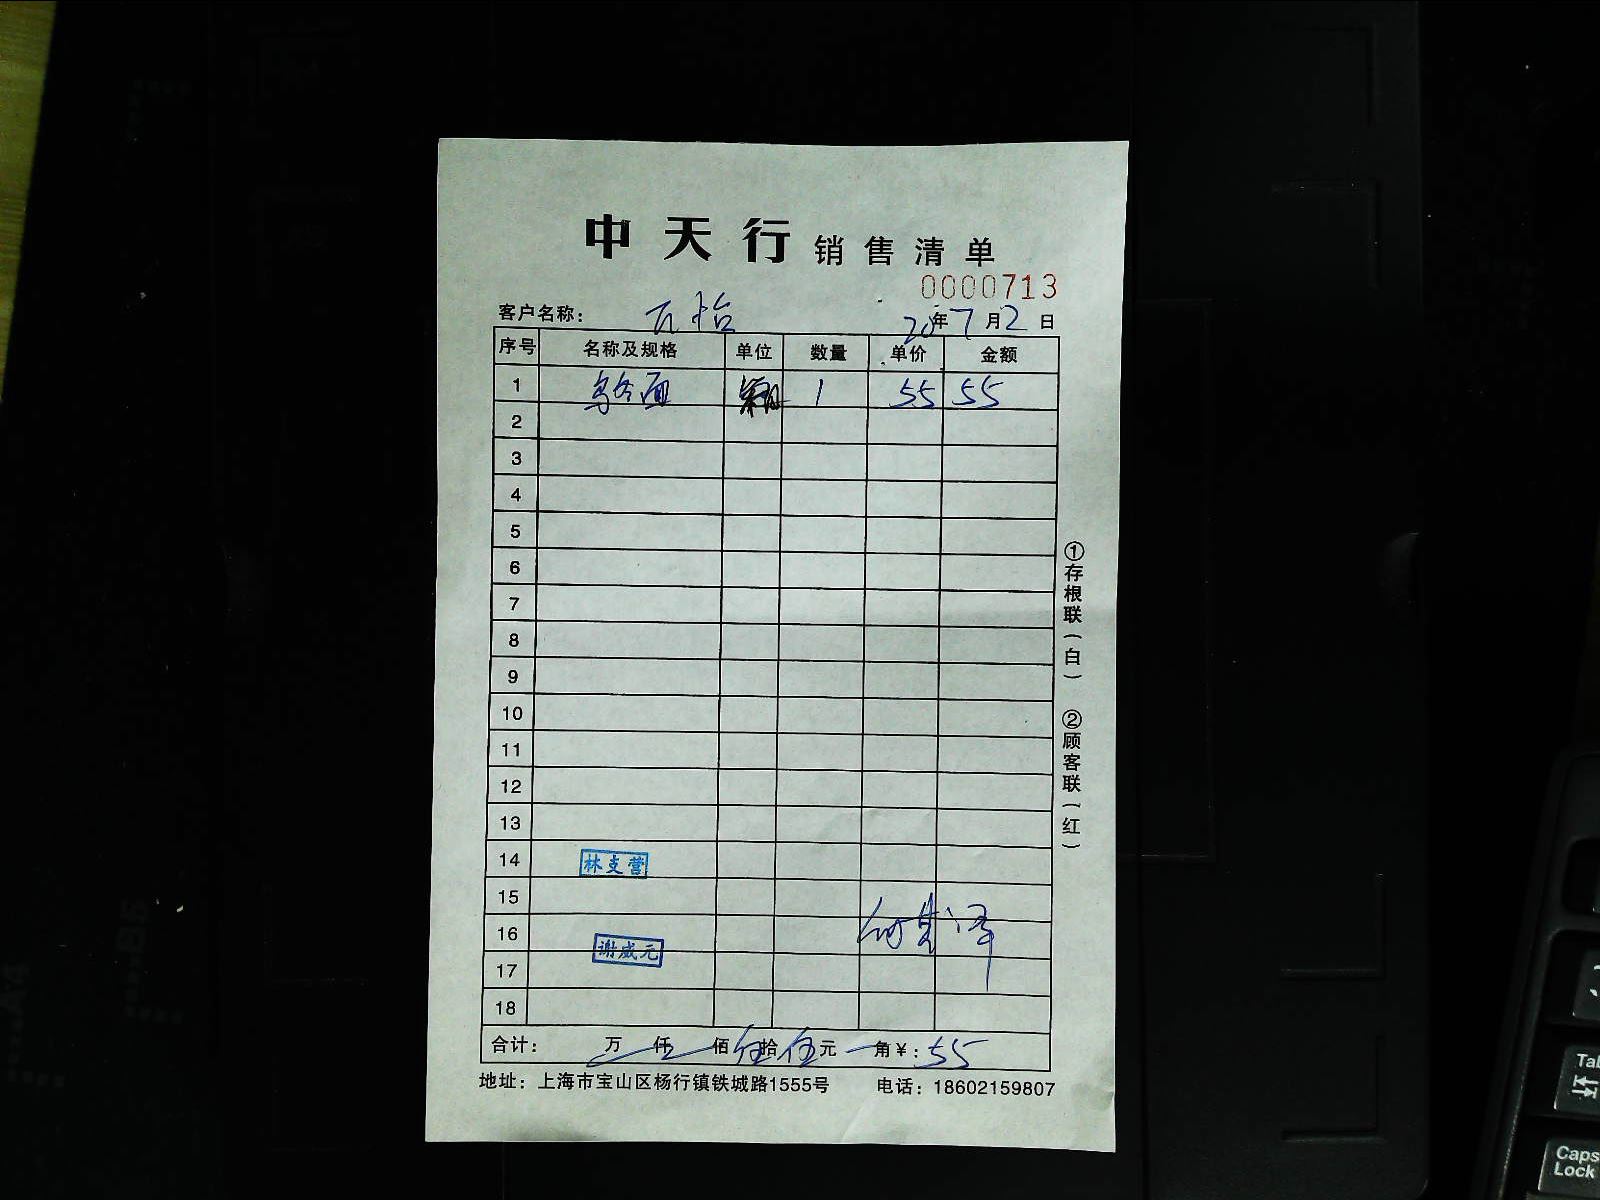 中天行 销售清单
0000713
客户名称: 20年7月2日
序号 名称及规格 单位 数量 单价 金额
1 乌冬面 1 55 55
2
3
4
5
6
7
8
9
10
11
12
13
14 林支营
15
16 何其泽
谢威元
17
18
合计: 万 仟 佰伍拾伍元 角¥:55
地址:上海市宝山区杨行镇铁城路1555号 电话:18602159807
①存根联(白) ②顾客联(红)
Tab
Caps
Lock